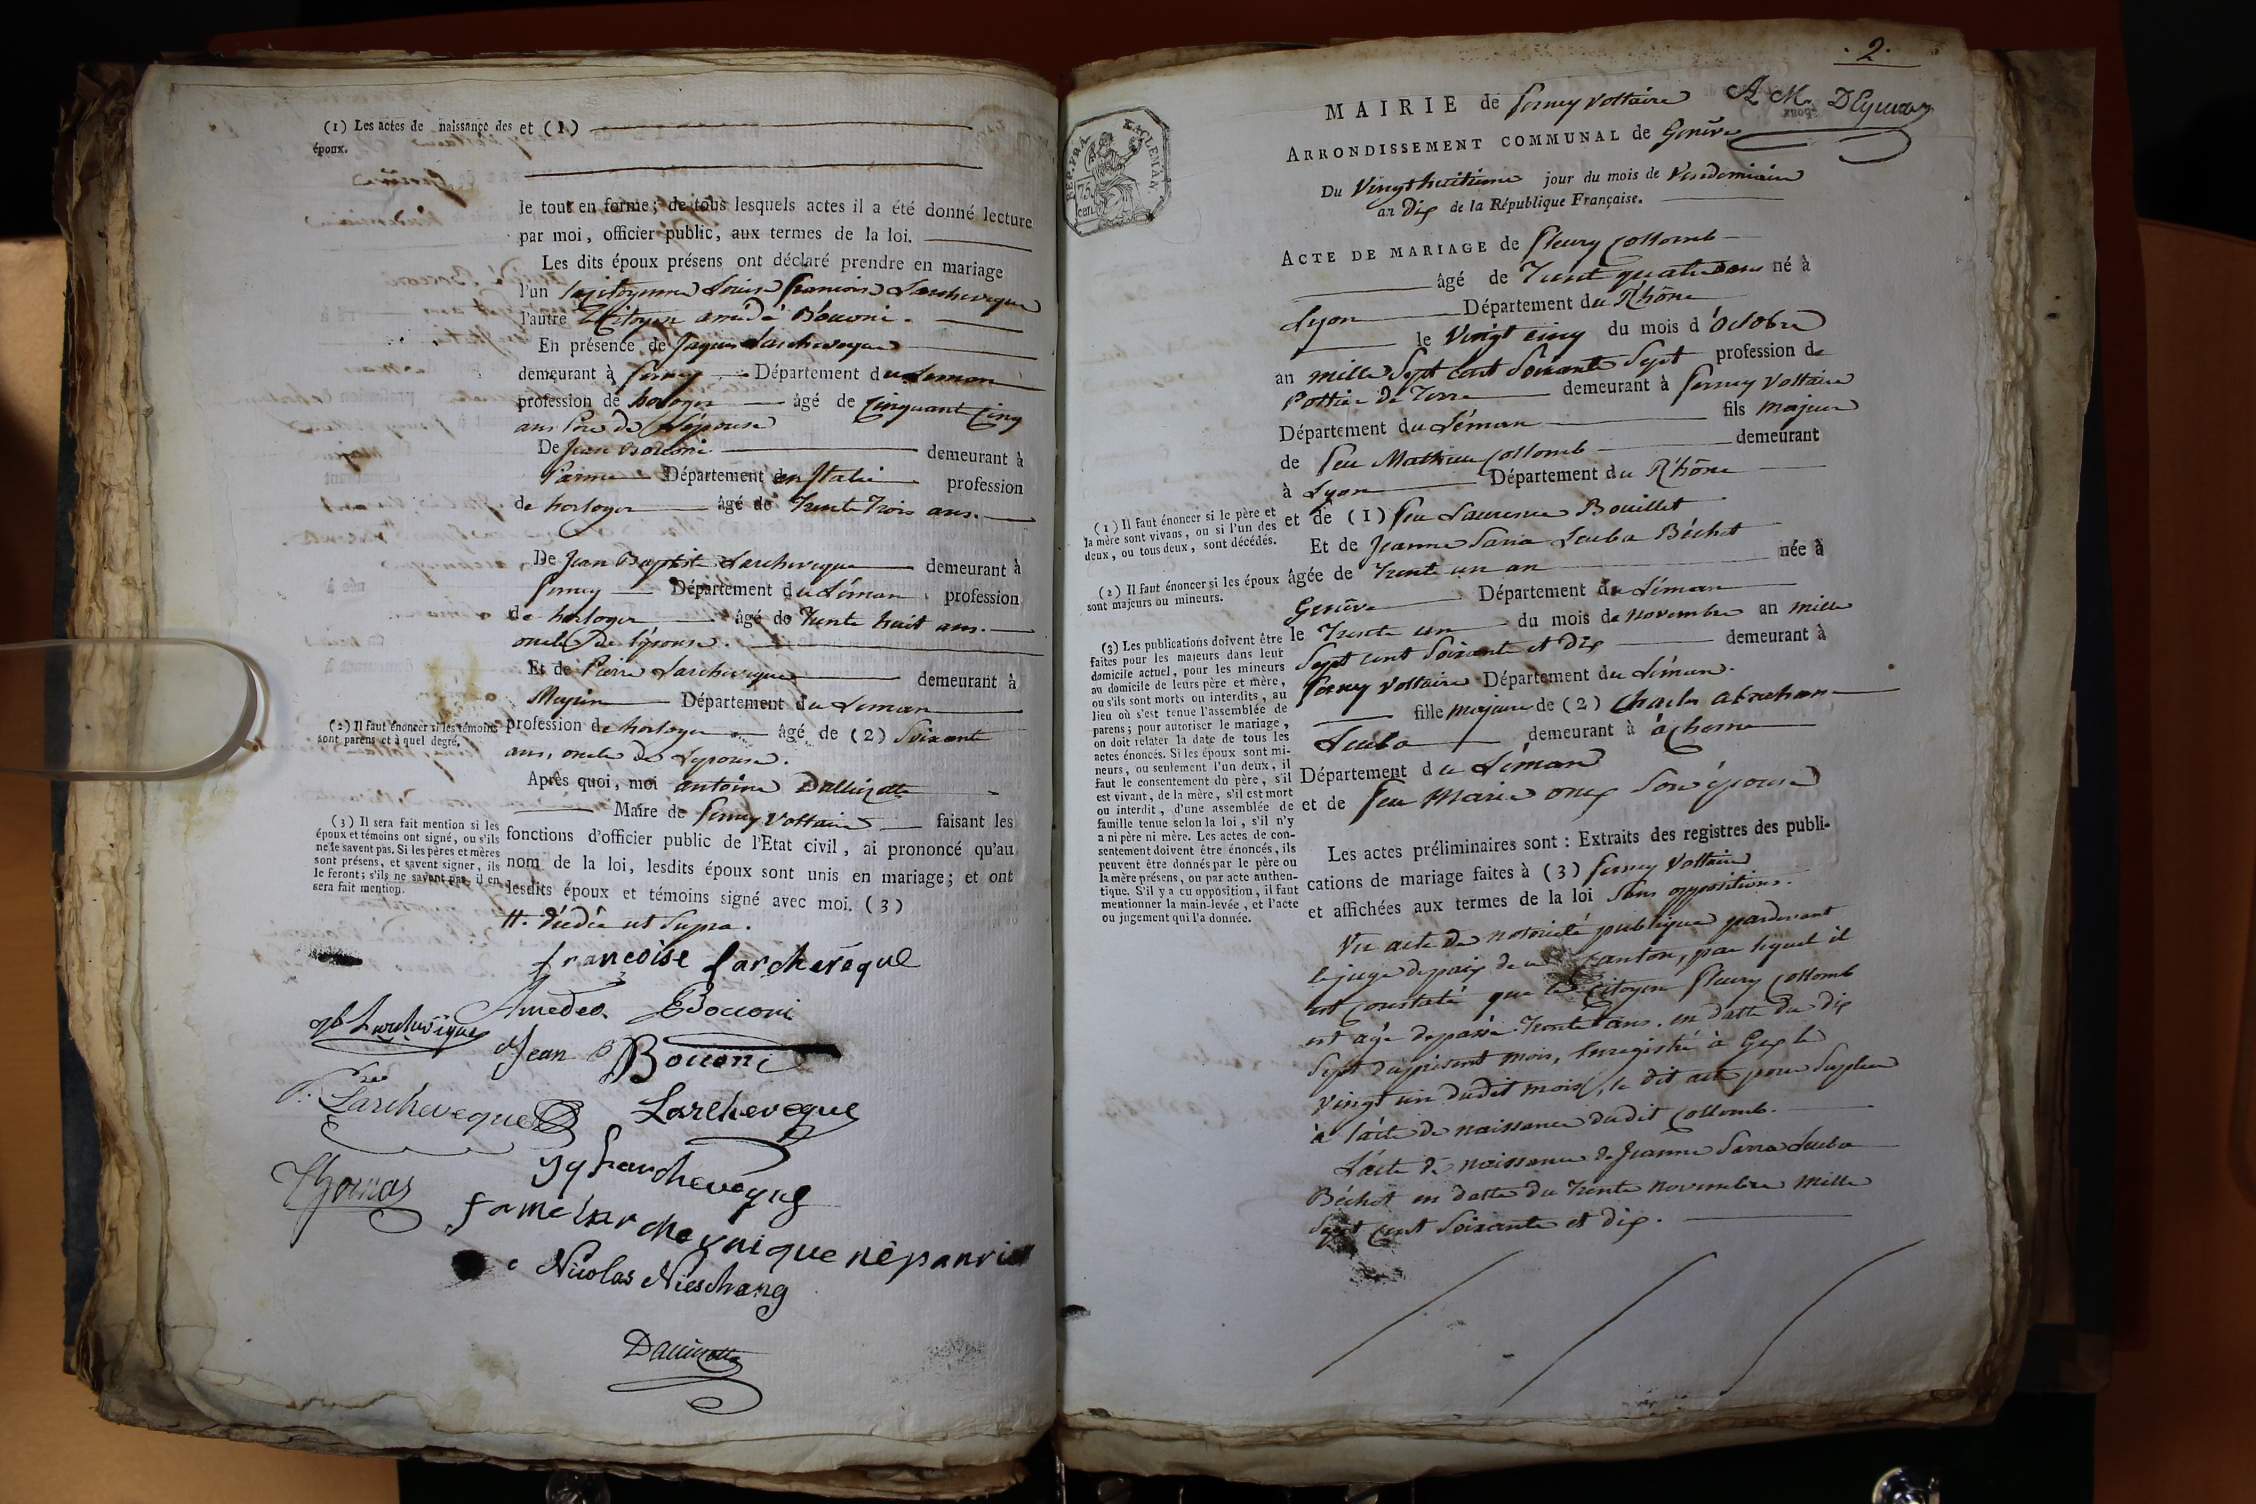 (1) Les actes de naissance des
époux.
et (1)
le tout en forme; de tous lesquels actes il a été donné lecture
par moi, officier public, aux termes de la loi.
Les dits époux présens ont déclaré prendre en mariage
l'un la citoyenne Louise francoise Larcheveque
l'autre Le Citoyen amédé Bocconi.
En présence de Jaques Larcheveque
demeurant à ferney Département du Leman
profession de horloger âgé de Cinquant Cinq
ans Père de L'épouse
De Jean Bocconi demeurant à
Parme Département en Italie profession
de horloger âgé de Trente Trois ans.
De Jean Baptiste Larcheveque demeurant à
ferney Département du Léman profession
de horloger âgé de Trente huit ans.
oncle de l'épouse.
Et de Pierre Larcheveque demeurant à
Meyrin Département du Leman
(2) Il faut énoncer si les témoins
sont parens et à quel degré.
profession de horloger âgé de (2) Soixant
ans, oncle de L'épouse.
Après quoi, moi antoine
Maire de ferney Voltaire faisant les
(3) Il sera fait mention si les
époux et témoins ont signé, ou s'ils
ne le savent pas. Si les pères et mères
sont présens, et savent signer, ils
le feront; s'ils ne savent pas, il en
sera fait mention.
fonctions d'officier public de l'Etat civil, ai prononcé qu'au
nom de la loi, lesdits époux sont unis en mariage; et ont
lesdits époux et témoins signé avec moi. (3)
ut Supra.
francoise Larchevêque
Amedeo Bocconi
Larchevêque
Jean B Bocconi
P. Larcheveque
Larcheveque
Larcheveque
Thomas
fame Larchevaique né panri
Nicolas Nieschang
2.
MAIRIE de ferney Voltaire
A M.
ARRONDISSEMENT COMMUNAL de Genève
REP. FRA.
LEMAN.
75
cen.
Du Vingt huitieme jour du mois de Vendemiaire
an Dix de la République Française.
ACTE DE MARIAGE de fleury Collomb
âgé de Trent quatre ans né à
Lyon Département du Rhône
le Vingt Cinq du mois d'Octobre
an mille Sept Cent Soixante Sept profession de
Pottier de Terre demeurant à ferney Voltaire
Département du Léman fils Majeur
de feu Mathieu Collomb demeurant
à Lyon Département du Rhône
(1) Il faut énoncer si le père et
la mère sont vivans, ou si l'un des
deux, ou tous deux, sont décédés.
et de (1) feu Laurence Bouillet
Et de Jeanne Sarra Leuba Béchet
âgée de Trente un an née à
(2) Il faut énoncer si les époux
sont majeurs ou mineurs.
Genève Département du Léman
le Trente un du mois de novembre an mille
Sept Cent Soixante et Dix demeurant à
ferney Voltaire Département du Léman.
fille Majeure de (2) Charles abraham
Leuba demeurant à
Département du Léman
et de feu Marie Son épouse
(3) Les publications doivent être
faites pour les majeurs dans leur
domicile actuel, pour les mineurs
au domicile de leurs père et mère,
ou s'ils sont morts ou interdits, au
lieu où s'est tenue l'assemblée de
parens; pour autoriser le mariage,
on doit relater la date de tous les
actes énoncés. Si les époux sont mi-
neurs, ou seulement l'un deux, il
faut le consentement du père, s'il
est vivant, de la mère, s'il est mort
ou interdit, d'une assemblée de
famille tenue selon la loi, s'il n'y
a ni père ni mère. Les actes de con-
sentement doivent être énoncés, ils
peuvent être donnés par le père ou
la mère présens, ou par acte authen-
tique. S'il y a eu opposition, il faut
mentionner la main-levée, et l'acte
ou jugement qui l'a donnée.
Les actes préliminaires sont : Extraits des registres des publi-
cations de mariage faites à (3) ferney Voltaire
et affichées aux termes de la loi Sans oppositions.
Vu acte de notorieté publique pardevant
le juge depaix de ce Canton, par lequel il
est Constaté que le Citoyen fleury Collomb
est agé depassé Trente ans. en datte du dix
Sept du présent mois, Enregistré à Gex le
Vingt un dudit mois, le dit acte pour Supleer
à l'acte de naissance dudit Collomb.
L'acte de naissance de Jeanne Sarra Leuba
Béchet en datte du Trente novembre Mille
Sept Cent Soixante et dix.